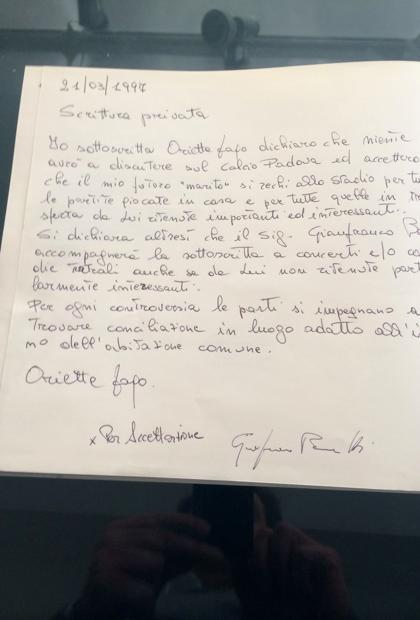 21/03/1997
Scrittura privata
Io sottoscritta Oriette fafo dichiaro che niente
avrò a discutere sul calcio Padova ed accetterò
che il mio futuro "marito" si rechi allo stadio per tu
le partite giocate in casa e per tutte quelle in tra
sferta da Lui ritenute importanti ed interessanti.
Si dichiara altresì che il Sig. Gianfranco
accompagnerà la sottoscritta a concerti e/o co
die teatrali anche se da Lui non ritenute part
larmente interessanti.
Per ogni controversia le parti si impegnano a
Trovare conciliazione in luogo adatto all'i
mo dell'abitazione comune.
Oriette fafo.
x Per Accettazione